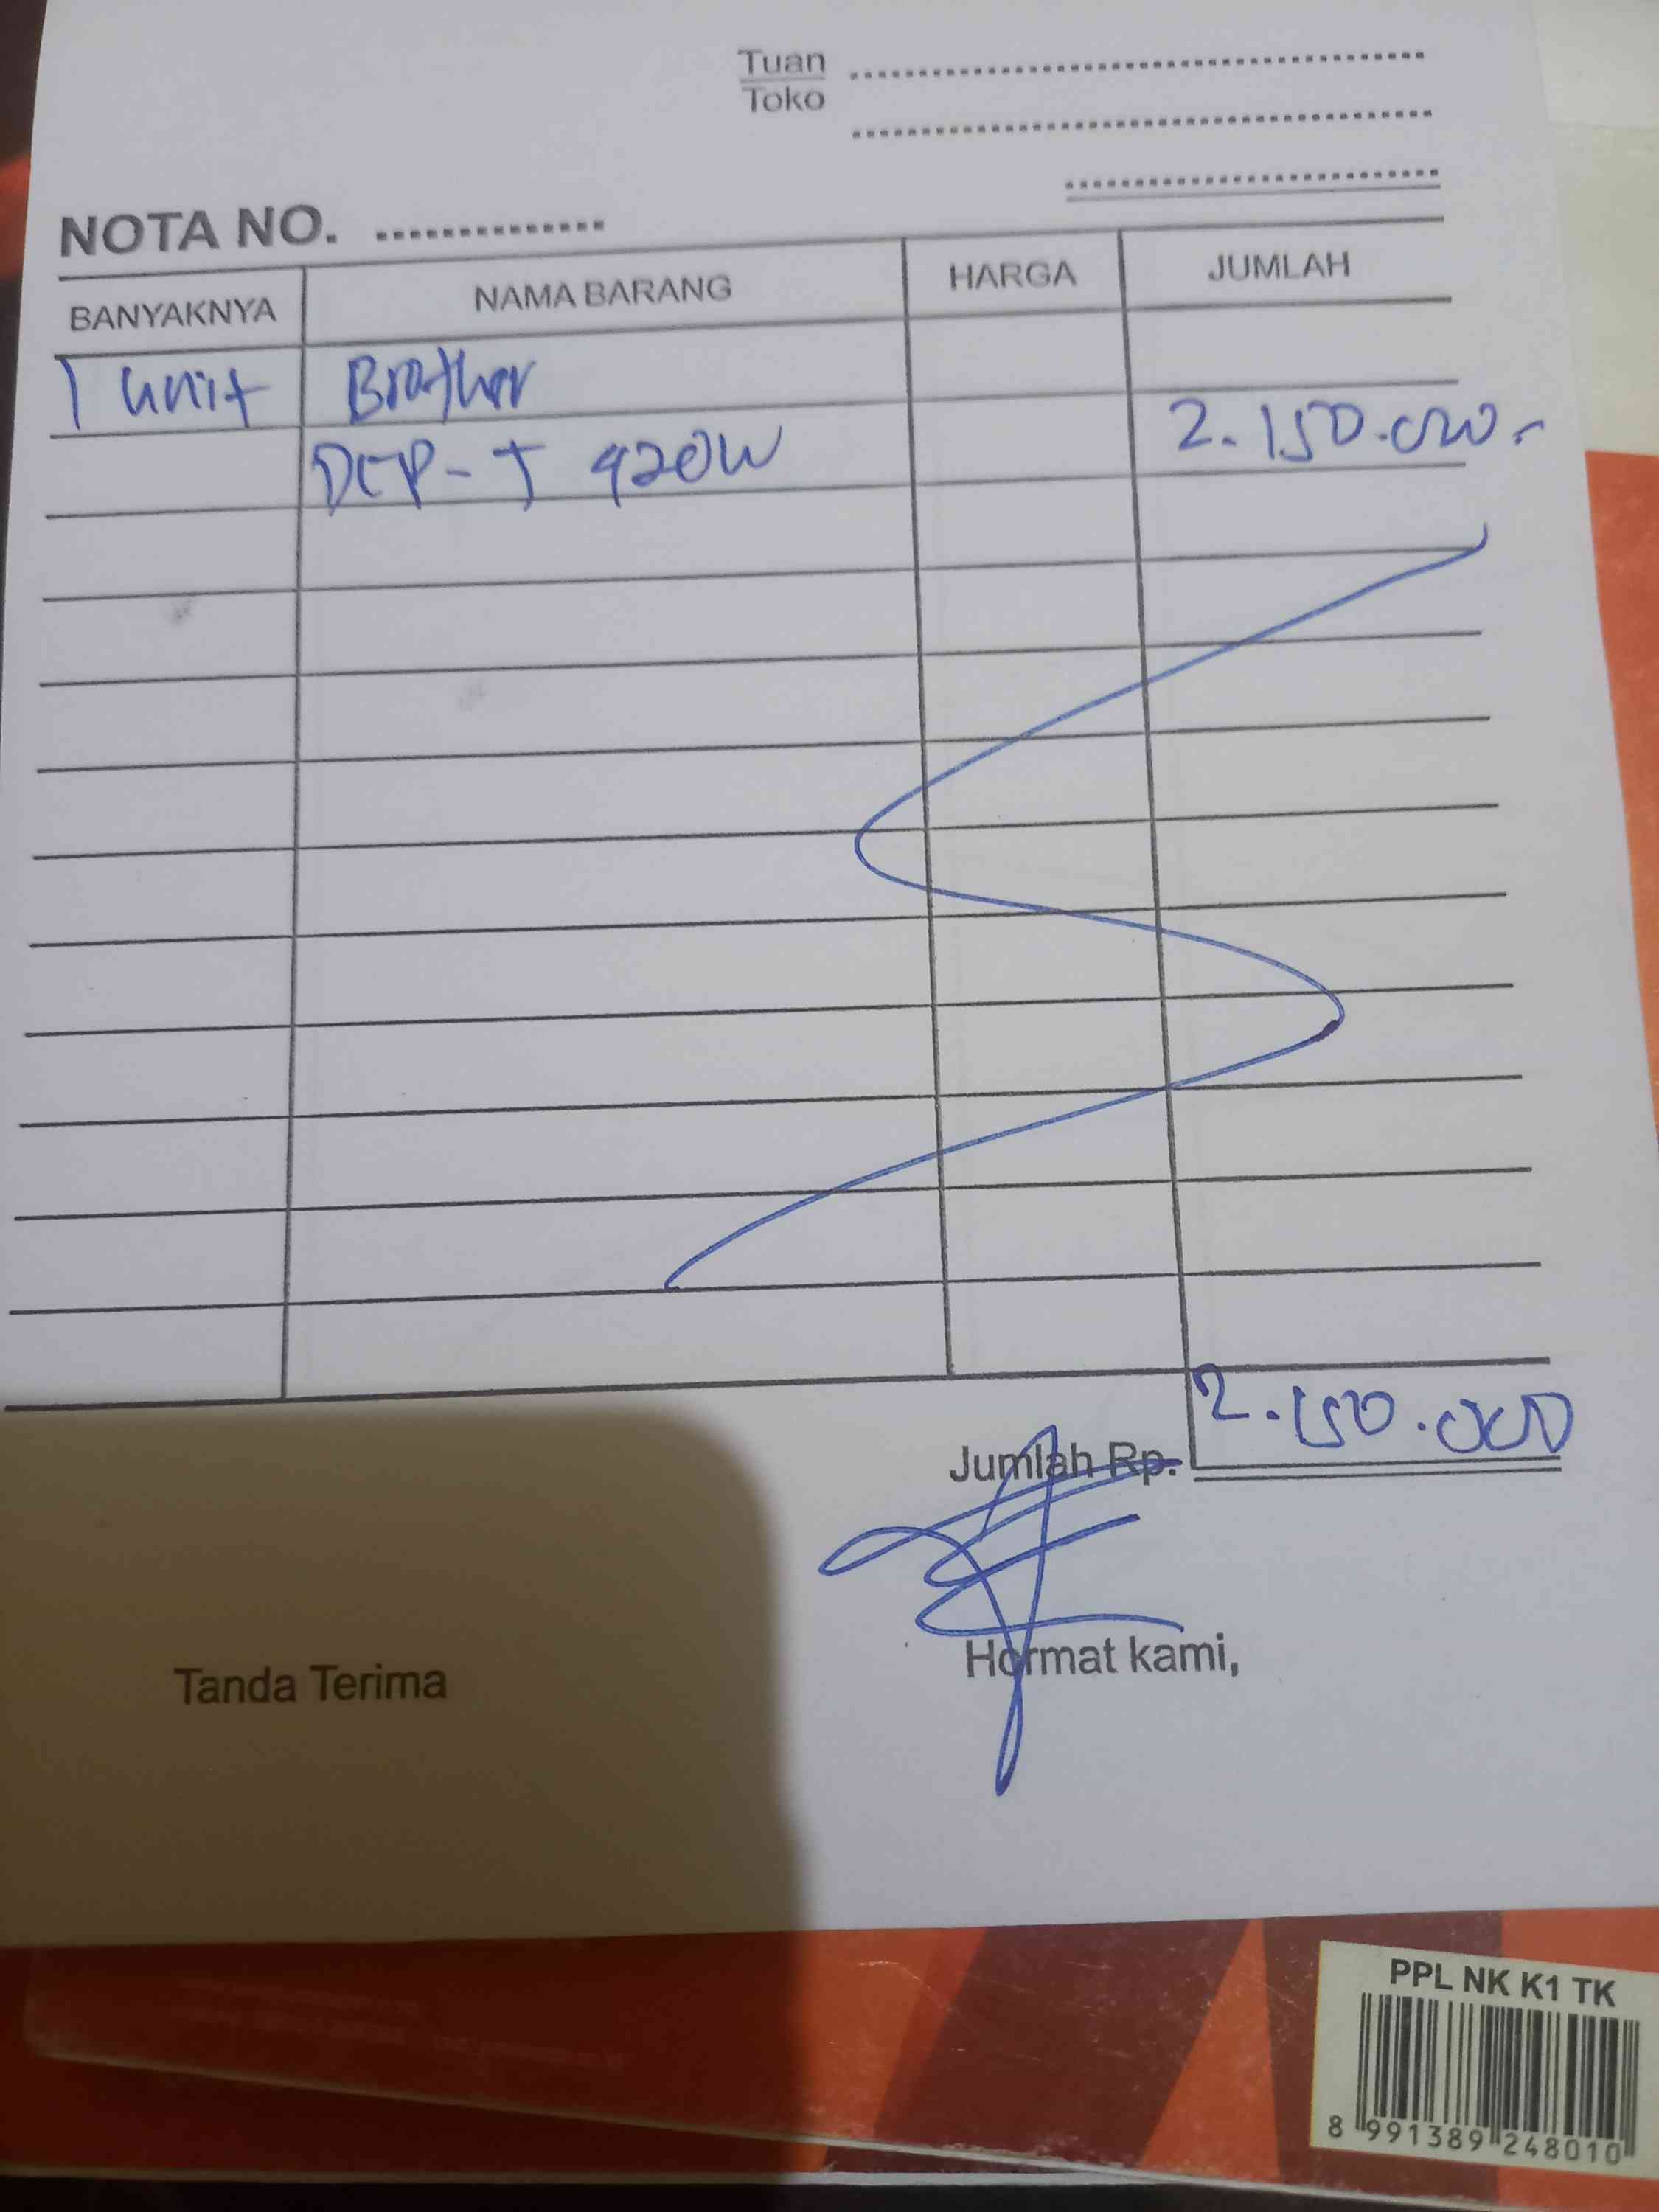 Tuan
Toko
NOTA NO.
BANYAKNYA NAMA BARANG HARGA JUMLAH
1 unit Brother
DCP-T 920W 2.150.000,-
Jumlah Rp. 2.150.000
Tanda Terima Hormat kami,
PPL NK K1 TK
8 991389 248010